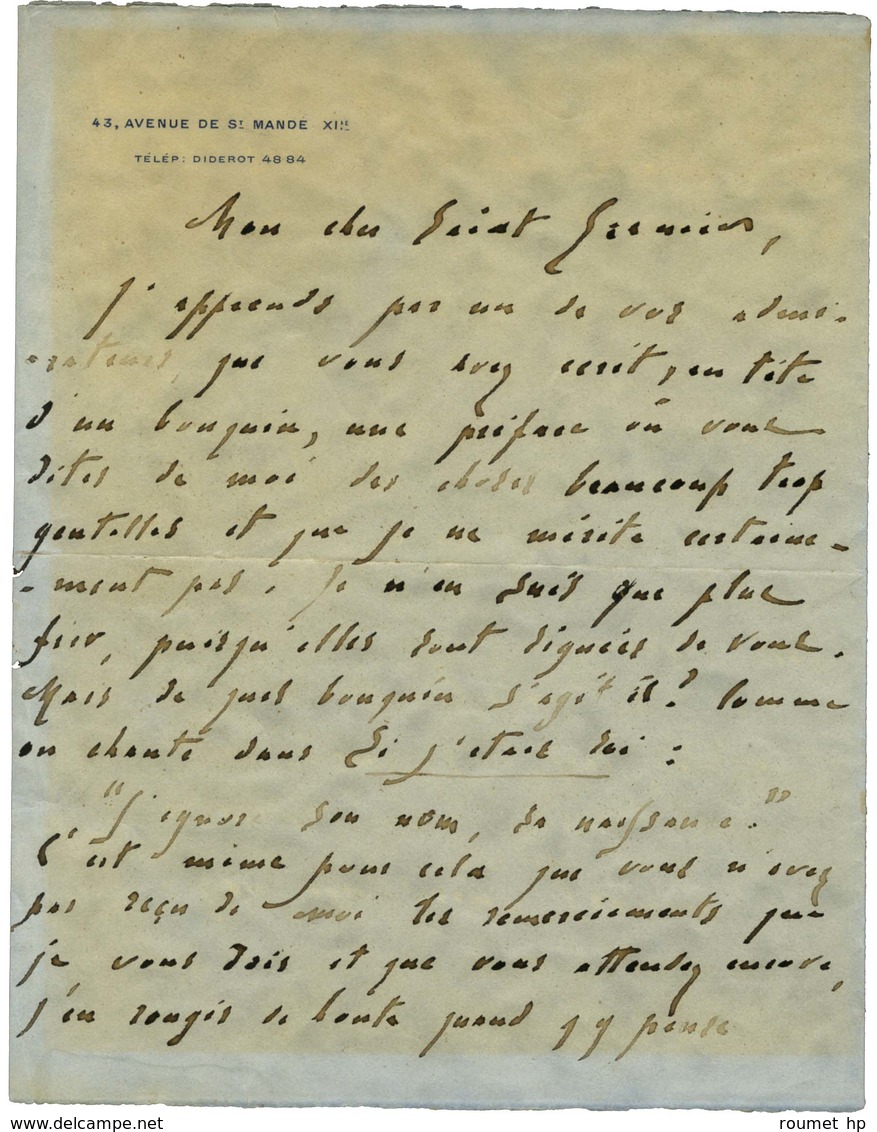 43, AVENUE DE ST MANDÉ XIIE
TÉLÉP: DIDEROT 48 84
Mon cher Saint Granier,
J'apprends par un de vos admi-
-rateurs, que vous avez écrit, en tête
d'un bouquin, une préface où vous
dites de moi des choses beaucoup trop
gentilles et que je ne mérite certaine-
-ment pas. Je n'en suis que plus
fier, puisqu'elles sont signées de vous.
Mais de quel bouquin s'agit il? Comme
on chante dans Si j'étais roi :
"J'ignore son nom, sa naissance."
C'est même pour cela que vous n'avez
pas reçu de moi les remerciements que
je vous dois et que vous attendez encore,
j'en rougis de honte quand j'y pense
roumet hp